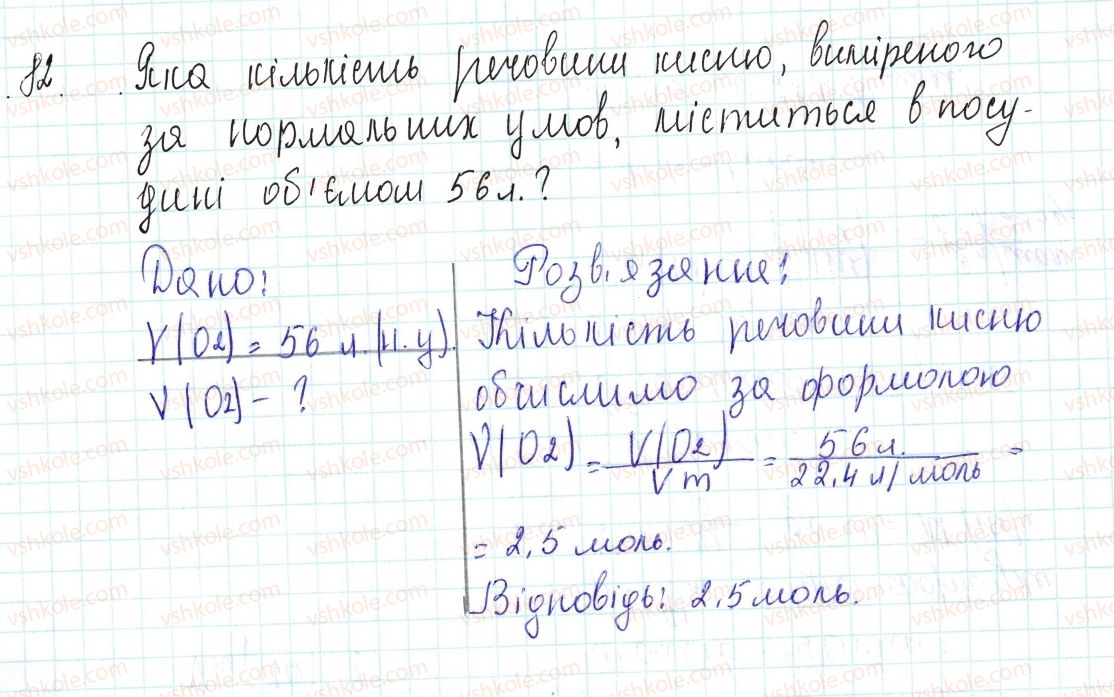 82. Яка кількість речовини кисню, виміреного
за нормальних умов, міститься в посу-
дині об'ємом 56 л.?
Дано:
V(O2) = 56 л. (н.у).
ν(O2) - ?
Розв'язання:
Кількість речовини кисню
обчислимо за формолою
ν(O2) = V(O2) / Vm = 56 л. / 22,4 л/моль =
= 2,5 моль.
Відповідь: 2,5 моль.